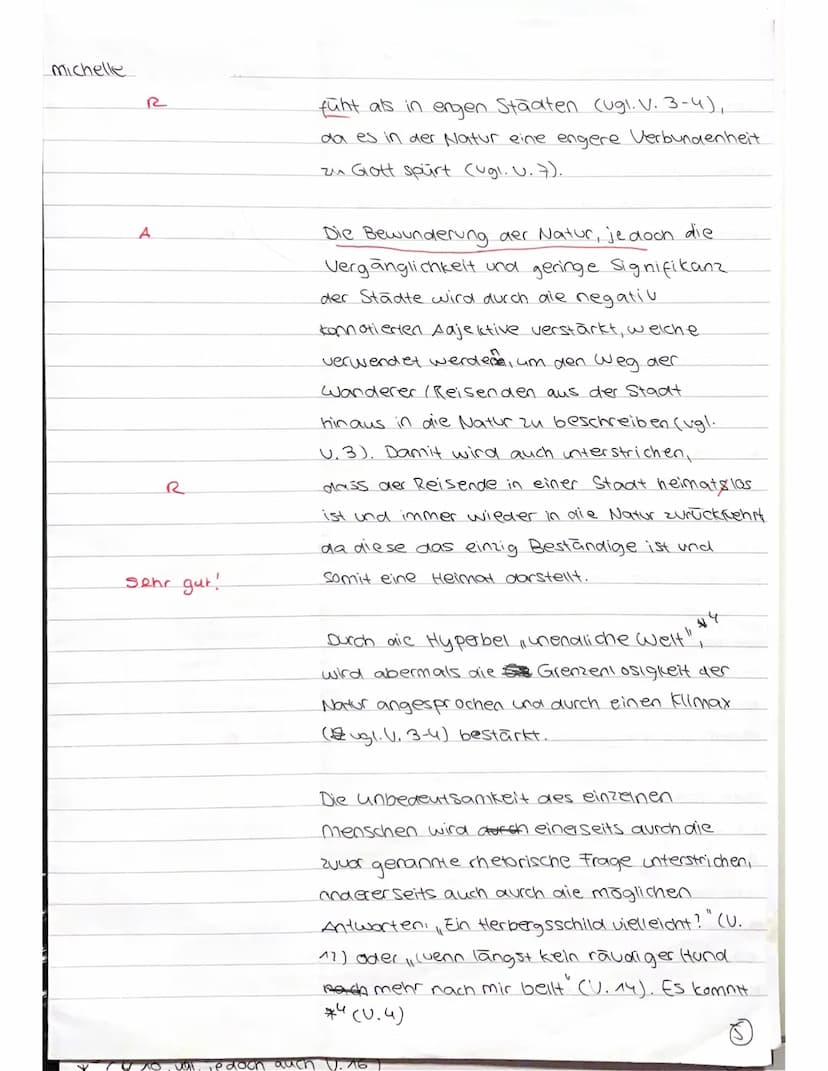 Michelle
R füht als in engen Städten (vgl. V. 3-4),
da es in der Natur eine engere Verbundenheit
zu Gott spürt (vgl. V. 7).
A Die Bewunderung der Natur, jedoch die
Vergänglichkeit und geringe Signifikanz
der Städte wird durch die negativ
konnotierten Adjektive verstärkt, welche
verwendet werden, um den Weg der
Wanderer/Reisenden aus der Stadt
hinaus in die Natur zu beschreiben (vgl.
V. 3). Damit wird auch unterstrichen,
R dass der Reisende in einer Stadt heimatslos
ist und immer wieder in die Natur zurückkehrt
da diese das einzig Beständige ist und
sehr gut! somit eine Heimat darstellt.
Durch die Hyperbel „unendliche Welt", *4
wird abermals die Grenzenlosigkeit der
Natur angesprochen und durch einen Klimax
(vgl. V. 3-4) bestärkt.
Die Unbedeutsamkeit des einzelnen
Menschen wird durch einerseits durch die
zuvor genannte rhetorische Frage unterstrichen,
andererseits auch durch die möglichen
Antworten: „Ein Herbergsschild vielleicht?" (V.
12) oder „wenn längst kein räudiger Hund
nach mehr nach mir bellt" (V. 14). Es kommt
*4 (V. 4)
5
jedoch auch V. 16)